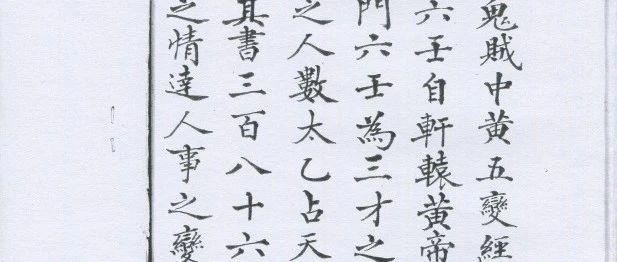 鬼賊中黃五變經
六壬自軒轅黃帝
門六壬為三才之
之人數太乙占天
其書三百八十六
之情達人事之變